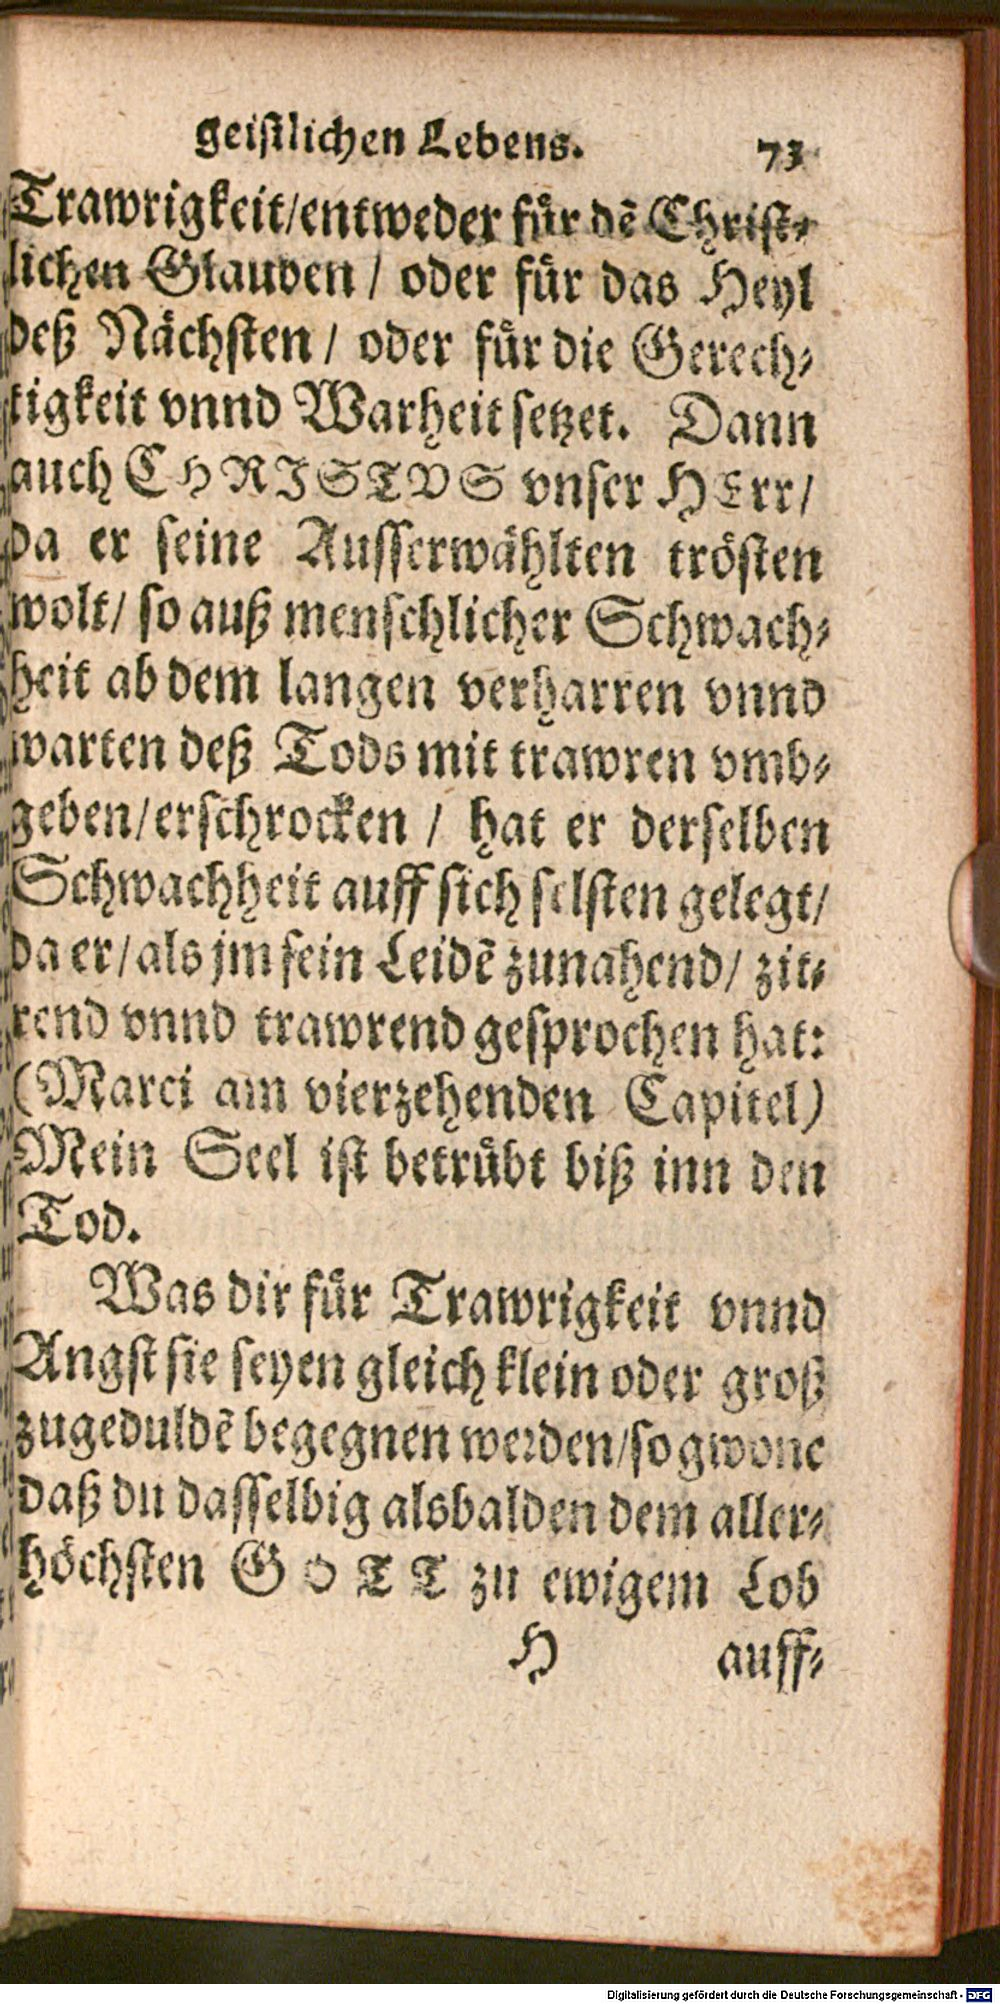 geistlichen Lebens. 73
Trawrigkeit/entweder für dẽ Christ⸗
lichen Glauben / oder für das Heyl
deß Nächsten / oder für die Gerech⸗
tigkeit vnnd Warheit setzet. Dann
auch CHRISTVS vnser HErr/
da er seine Ausserwählten trösten
wolt/ so auß menschlicher Schwach⸗
heit ab dem langen verharren vnnd
warten deß Tods mit trawren vmb⸗
geben/erschrocken / hat er derselben
Schwachheit auff sich selsten gelegt/
da er/als jm sein Leidẽ zunahend/ zit⸗
rend vnnd trawrend gesprochen hat:
(Marci am vierzehenden Capitel)
Mein Seel ist betrübt biß inn den
Tod.
Was dir für Trawrigkeit vnnd
Angst sie seyen gleich klein oder groß
zugeduldẽ begegnen werden/so gwone
daß du dasselbig alsbalden dem aller⸗
höchsten GOTT zu ewigem Lob
H auff⸗
Digitalisierung gefördert durch die Deutsche Forschungsgemeinschaft - DFG